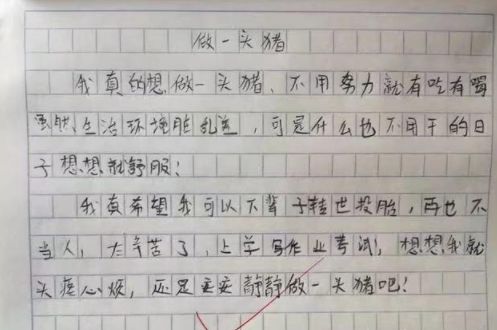 做一头猪
我真的想做一头猪、不用努力就有吃有喝
虽然生活环境脏乱差，可是什么也不用干的日
子想想就舒服！
我真希望我可以下辈子转世投胎，再也不
当人，太辛苦了，上学写作业考试，想想我就
头疼心烦，还是安安静静做一头猪吧！